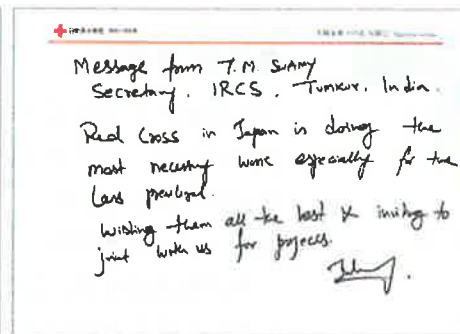 Message from T.M. SWAMY
Secretary. IRCS. Tumkur. India.
Red Cross in Japan is doing the
most necessary work especially for the
Less
wishing them all the best & inviting to
joint with us for projects.